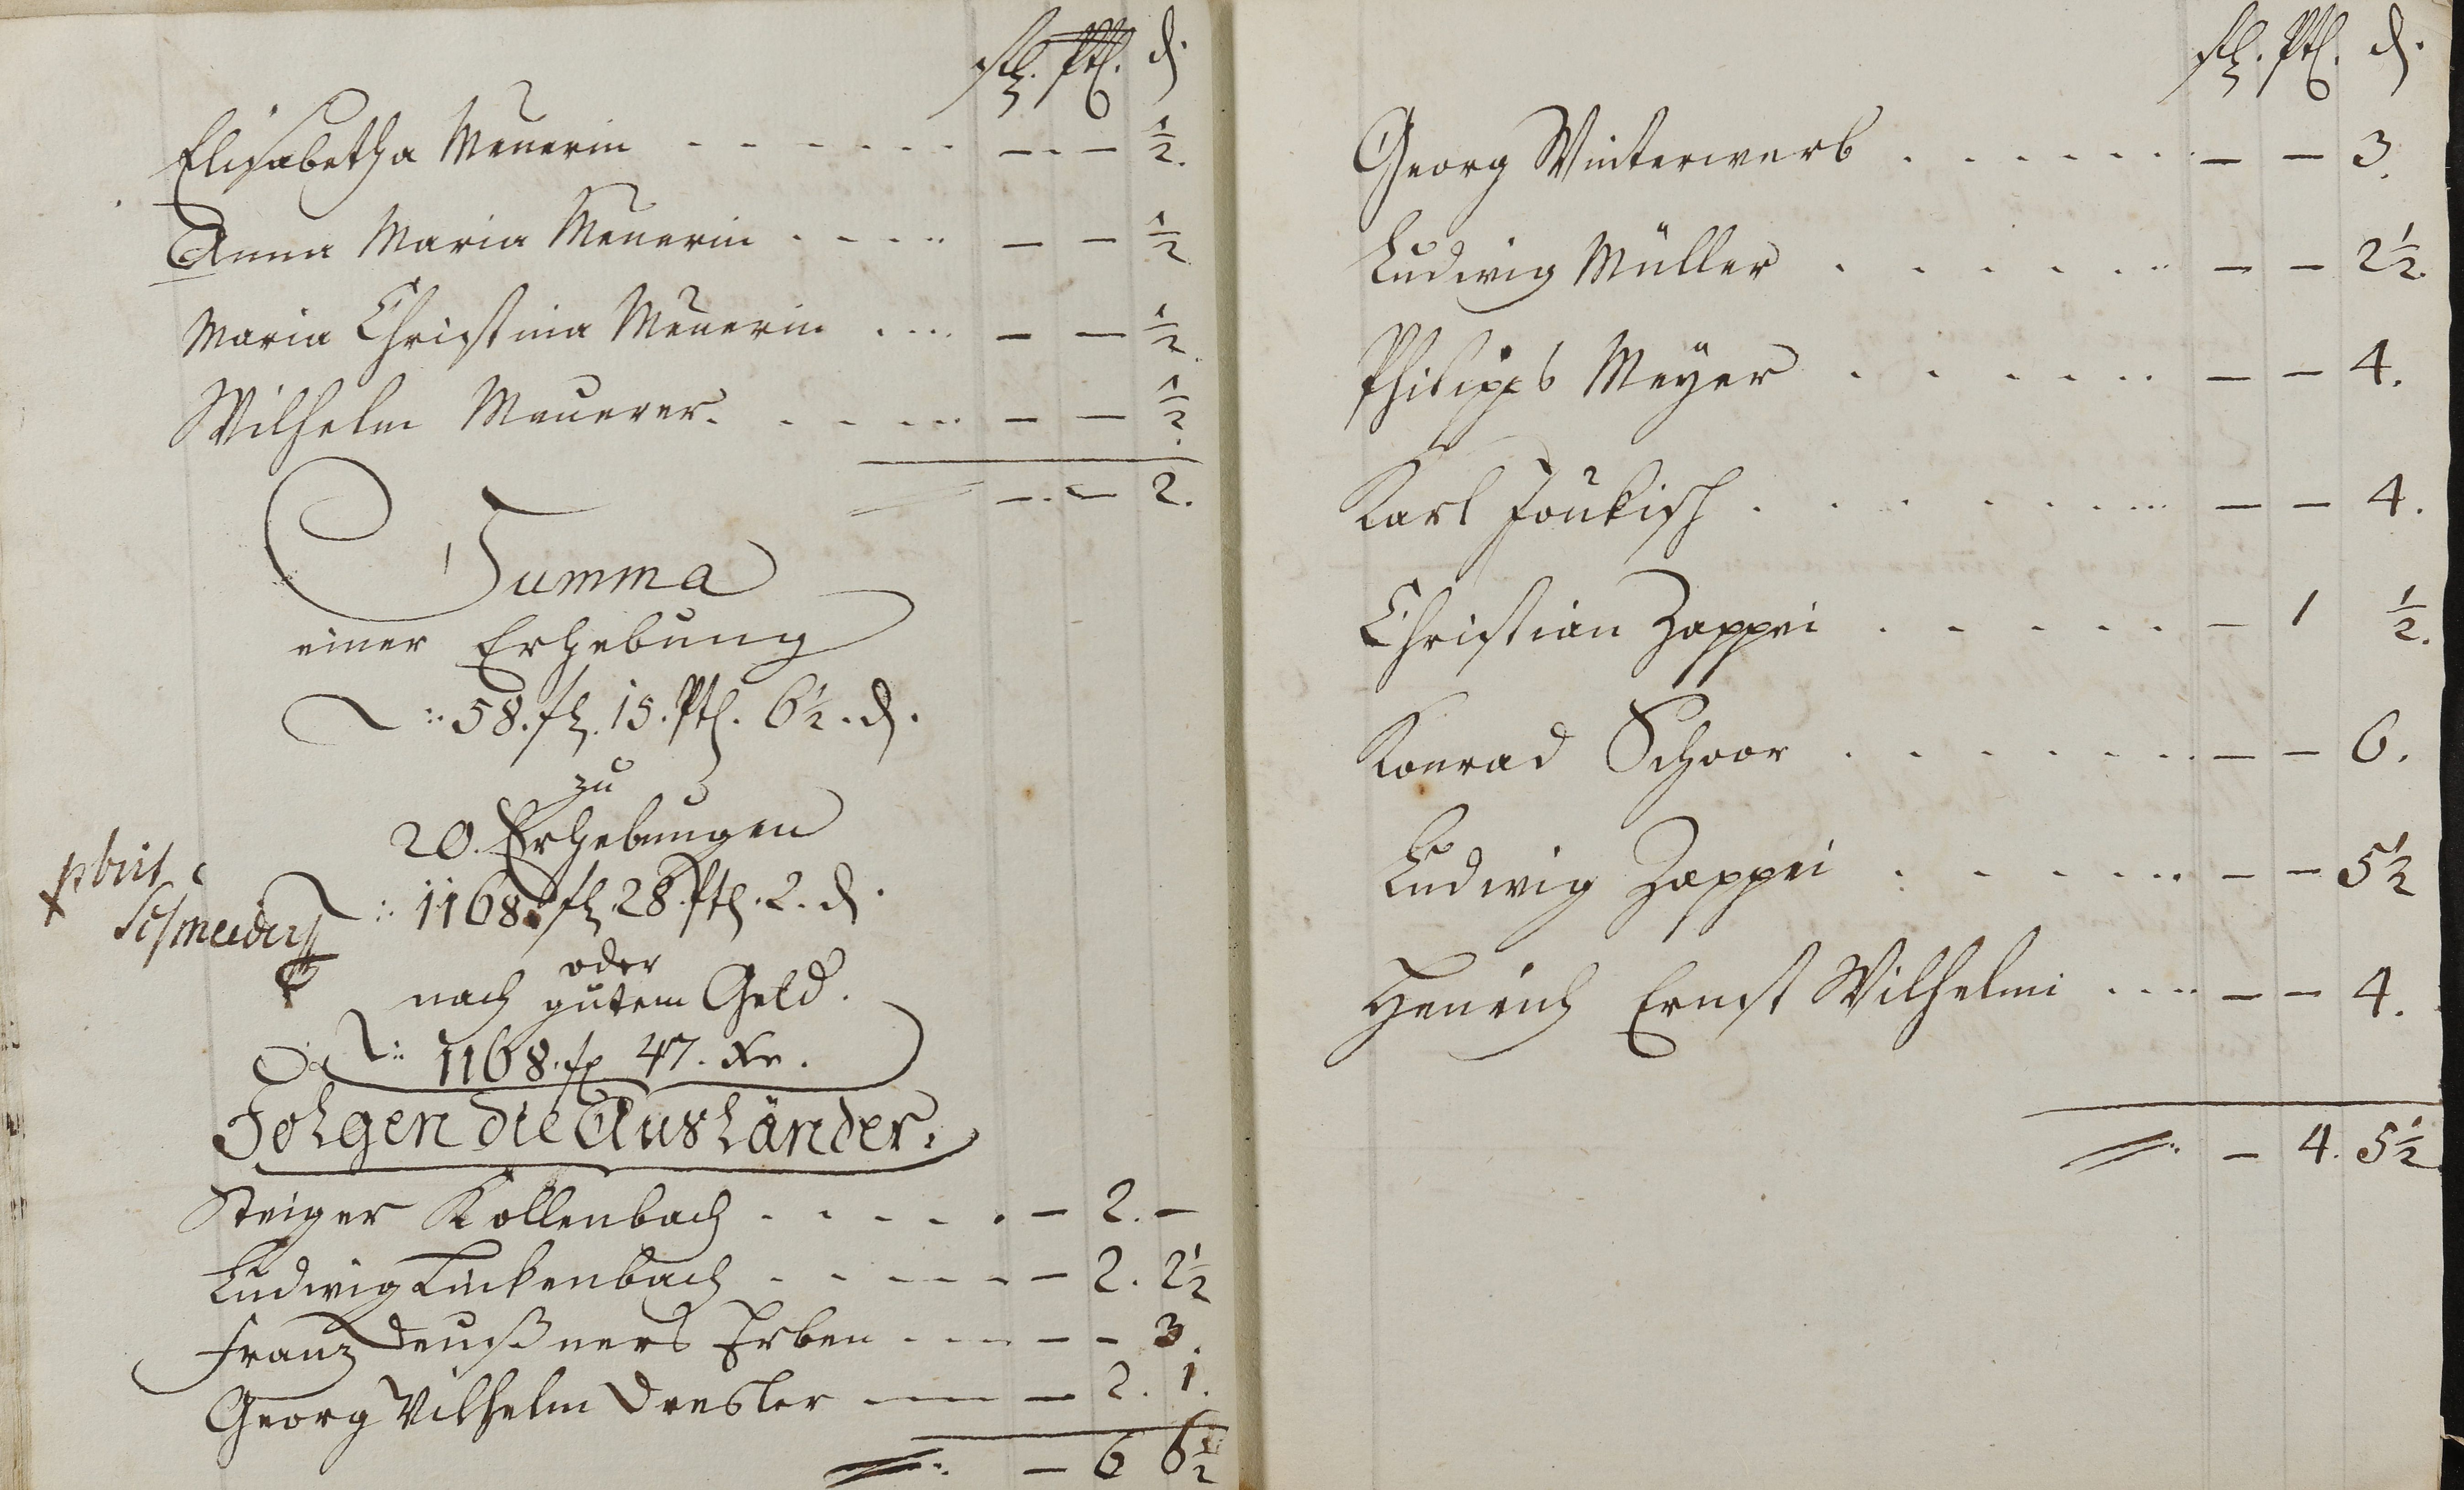 fl. Ptl. d.
Elisabetha Meuerin - - - - - - - - - ½.
Anna Maria Meuerin - - - - - - - ½
Maria Christina Meuerin - - - - - - ½.
Wilhelm Meuerer. - - - - - - - ½.
- - 2.
Summa
einer Erhebung
58. fl. 15. Ptl. 6½. d.
zu
20. Erhebungen
1168. fl. 28. Ptl. 2. d.
Schmeider
oder
nach gutem Geld.
1168. fl. 47. Xr.
Folgen die Ausländer.
Steiger Kollenbach - - - - - - 2. -
Ludwig Luckenbach - - - - - - 2. 2½
Franz Deußners Erben - - - - - 3.
Georg Wilhelm Dresler - - - 2. 1.
- 6 6½
fl. Ptl. d.
Georg Winterwerb - - - - - - - - 3.
Ludwig Müller - - - - - - - - 2½.
Philipps Meÿer - - - - - - - - 4.
Karl - - - - - - - - 4.
Christian Zappei - - - - - - 1 ½.
Konrad Schoor - - - - - - - - 6.
Ludwig Zappei - - - - - - - 5½
Henrich Ernst Wilhelmi - - - - - 4.
- 4. 5½